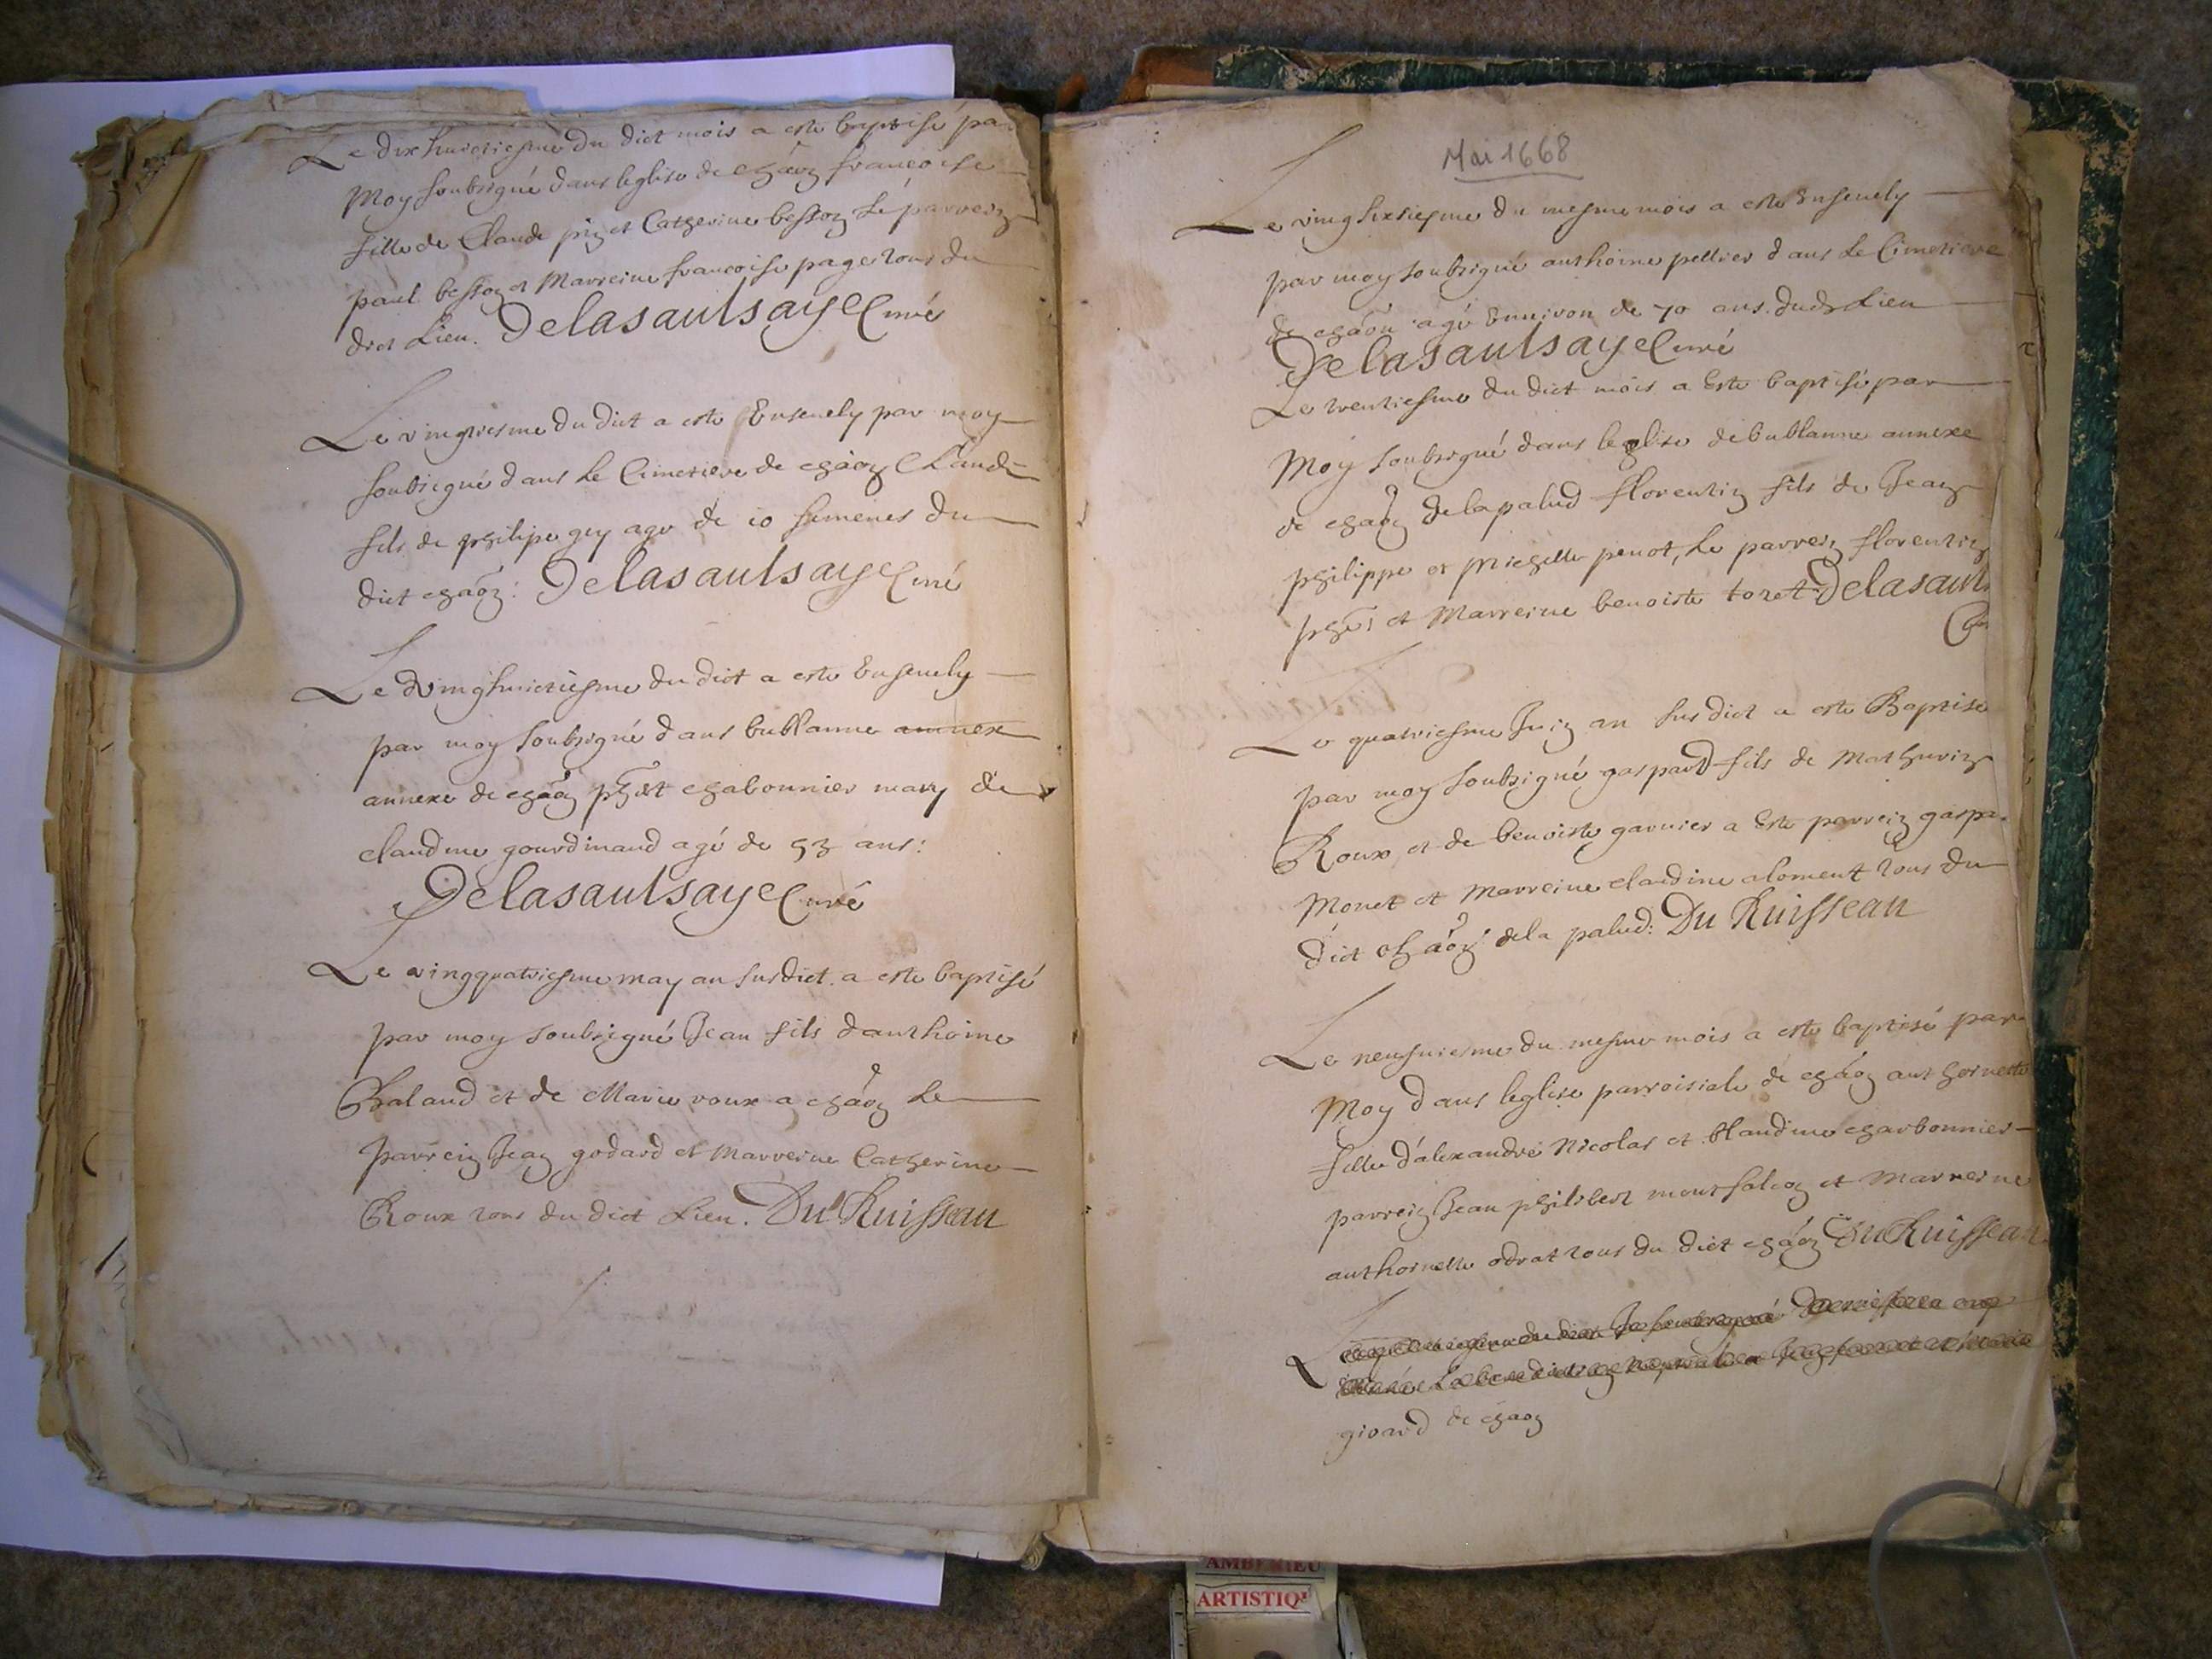 Le dix huictiesme du dict mois a este baptisé pa
Moy soubsigné dans leglise de chaōn francoise
fille de Claude piz et Catherine besson Le parrein
paul besson et Marreine francoise page tous du
dict Lieu. Delasaulsaye Curé
Le vingtiesme du dict a este Ensevely par moy
soubsigné dans Le Cimetiere de chaōn Claude
fils de philipe gey agé de 10 semenes du
dict chaōn: Delasaulsaye Curé
Le vinghuictiesme du dict a este Ensevely
par moy soubsigné dans bublanne annex
annexe de chaōn phert chabonnier mary de
claudine gourdinaud agé de 53 ans:
Delasaulsaye Curé
Le vingquatriesme may an susdict a este baptisé
par moy soubsigné Jean fils danthoine
Baland et de Marie roux a chaōn Le
parrein Jean godard et Marreine Catherine
Roux tous du dict Lieu. Du Ruisseau
Mai 1668
Le vingsixsiesme du mesme mois a este Ensevely
par moy soubsigné anthoine pellier dans Le Cimetiere
de chaōn agé Environ de 70 ans. dudt Lieu
Delasaulsaye Curé
Le trentiesme du dict mois a Este baptisé par
Moy soubsigné dans leglise de bublanne annexe
de chaōn delapalud florentin fils de Jean
philippe et Michelle penot, Le parrein florentin
phē: et Marreine benoiste toret: Delasaul
Cu
Le quatriesme Juin an susdict a este Baptise
par moy soubsigné gaspard fils de Mathurin
Roux, et de benoiste garnier a Este parrein gaspa
Monet et Marreine claudine aloment tous du
dict chaōn dela palud: Du Ruisseau
Le neufuiesme du mesme mois a este baptisé par
Moy dans leglise parroisiale de chaōn anthoinette
fille d'alexandre Nicolas et Claudine charbonnier
parrein Jean philibert montfalcon et Marreine
anthoinette odrat tous du dict chaōn Du Ruisseau
girard de chaon
AMBERIEU
ARTISTIQ